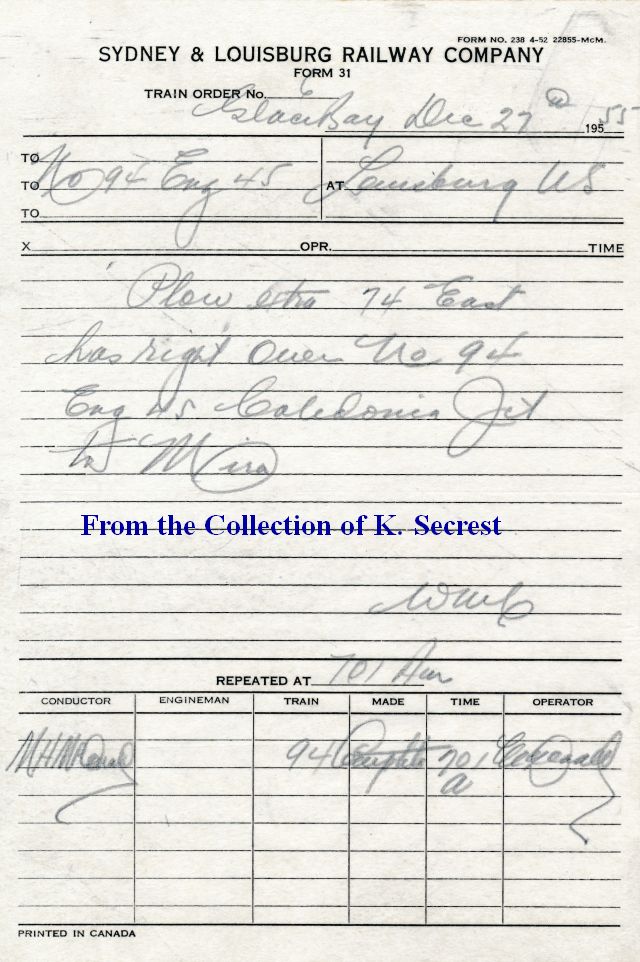 FORM NO. 238 4-52 22855-McM.
SYDNEY & LOUISBURG RAILWAY COMPANY
FORM 31
TRAIN ORDER No. 6
Glace Bay Dec 27th 195 55
TO
TO No 94 Eng 45 AT Louisburg US
TO
X OPR. TIME
Plow extra 74 East
has right over No 94
Eng 45 Caledonia Jct
to Mira
From the Collection of K. Secrest
REPEATED AT 701 Am
CONDUCTOR ENGINEMAN TRAIN MADE TIME OPERATOR
94 Complete 701 A
PRINTED IN CANADA